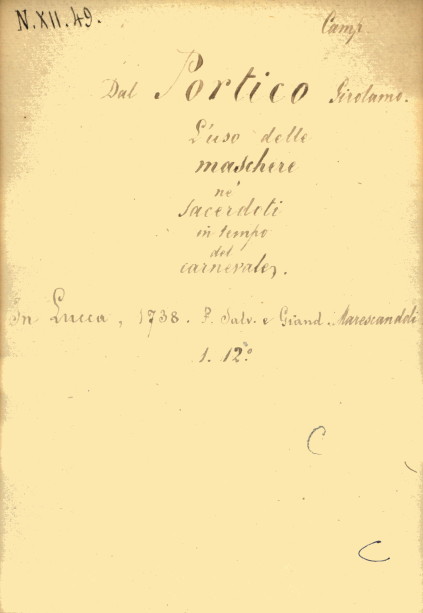 N.XII.49.
Camp.
Dal Portico Girolamo.
L'uso delle
maschere
ne'
sacerdoti
in tempo
del
carnevale,.
In Lucca, 1738. P. Salv. e Giand. Marescandoli
1. 12°
C
C